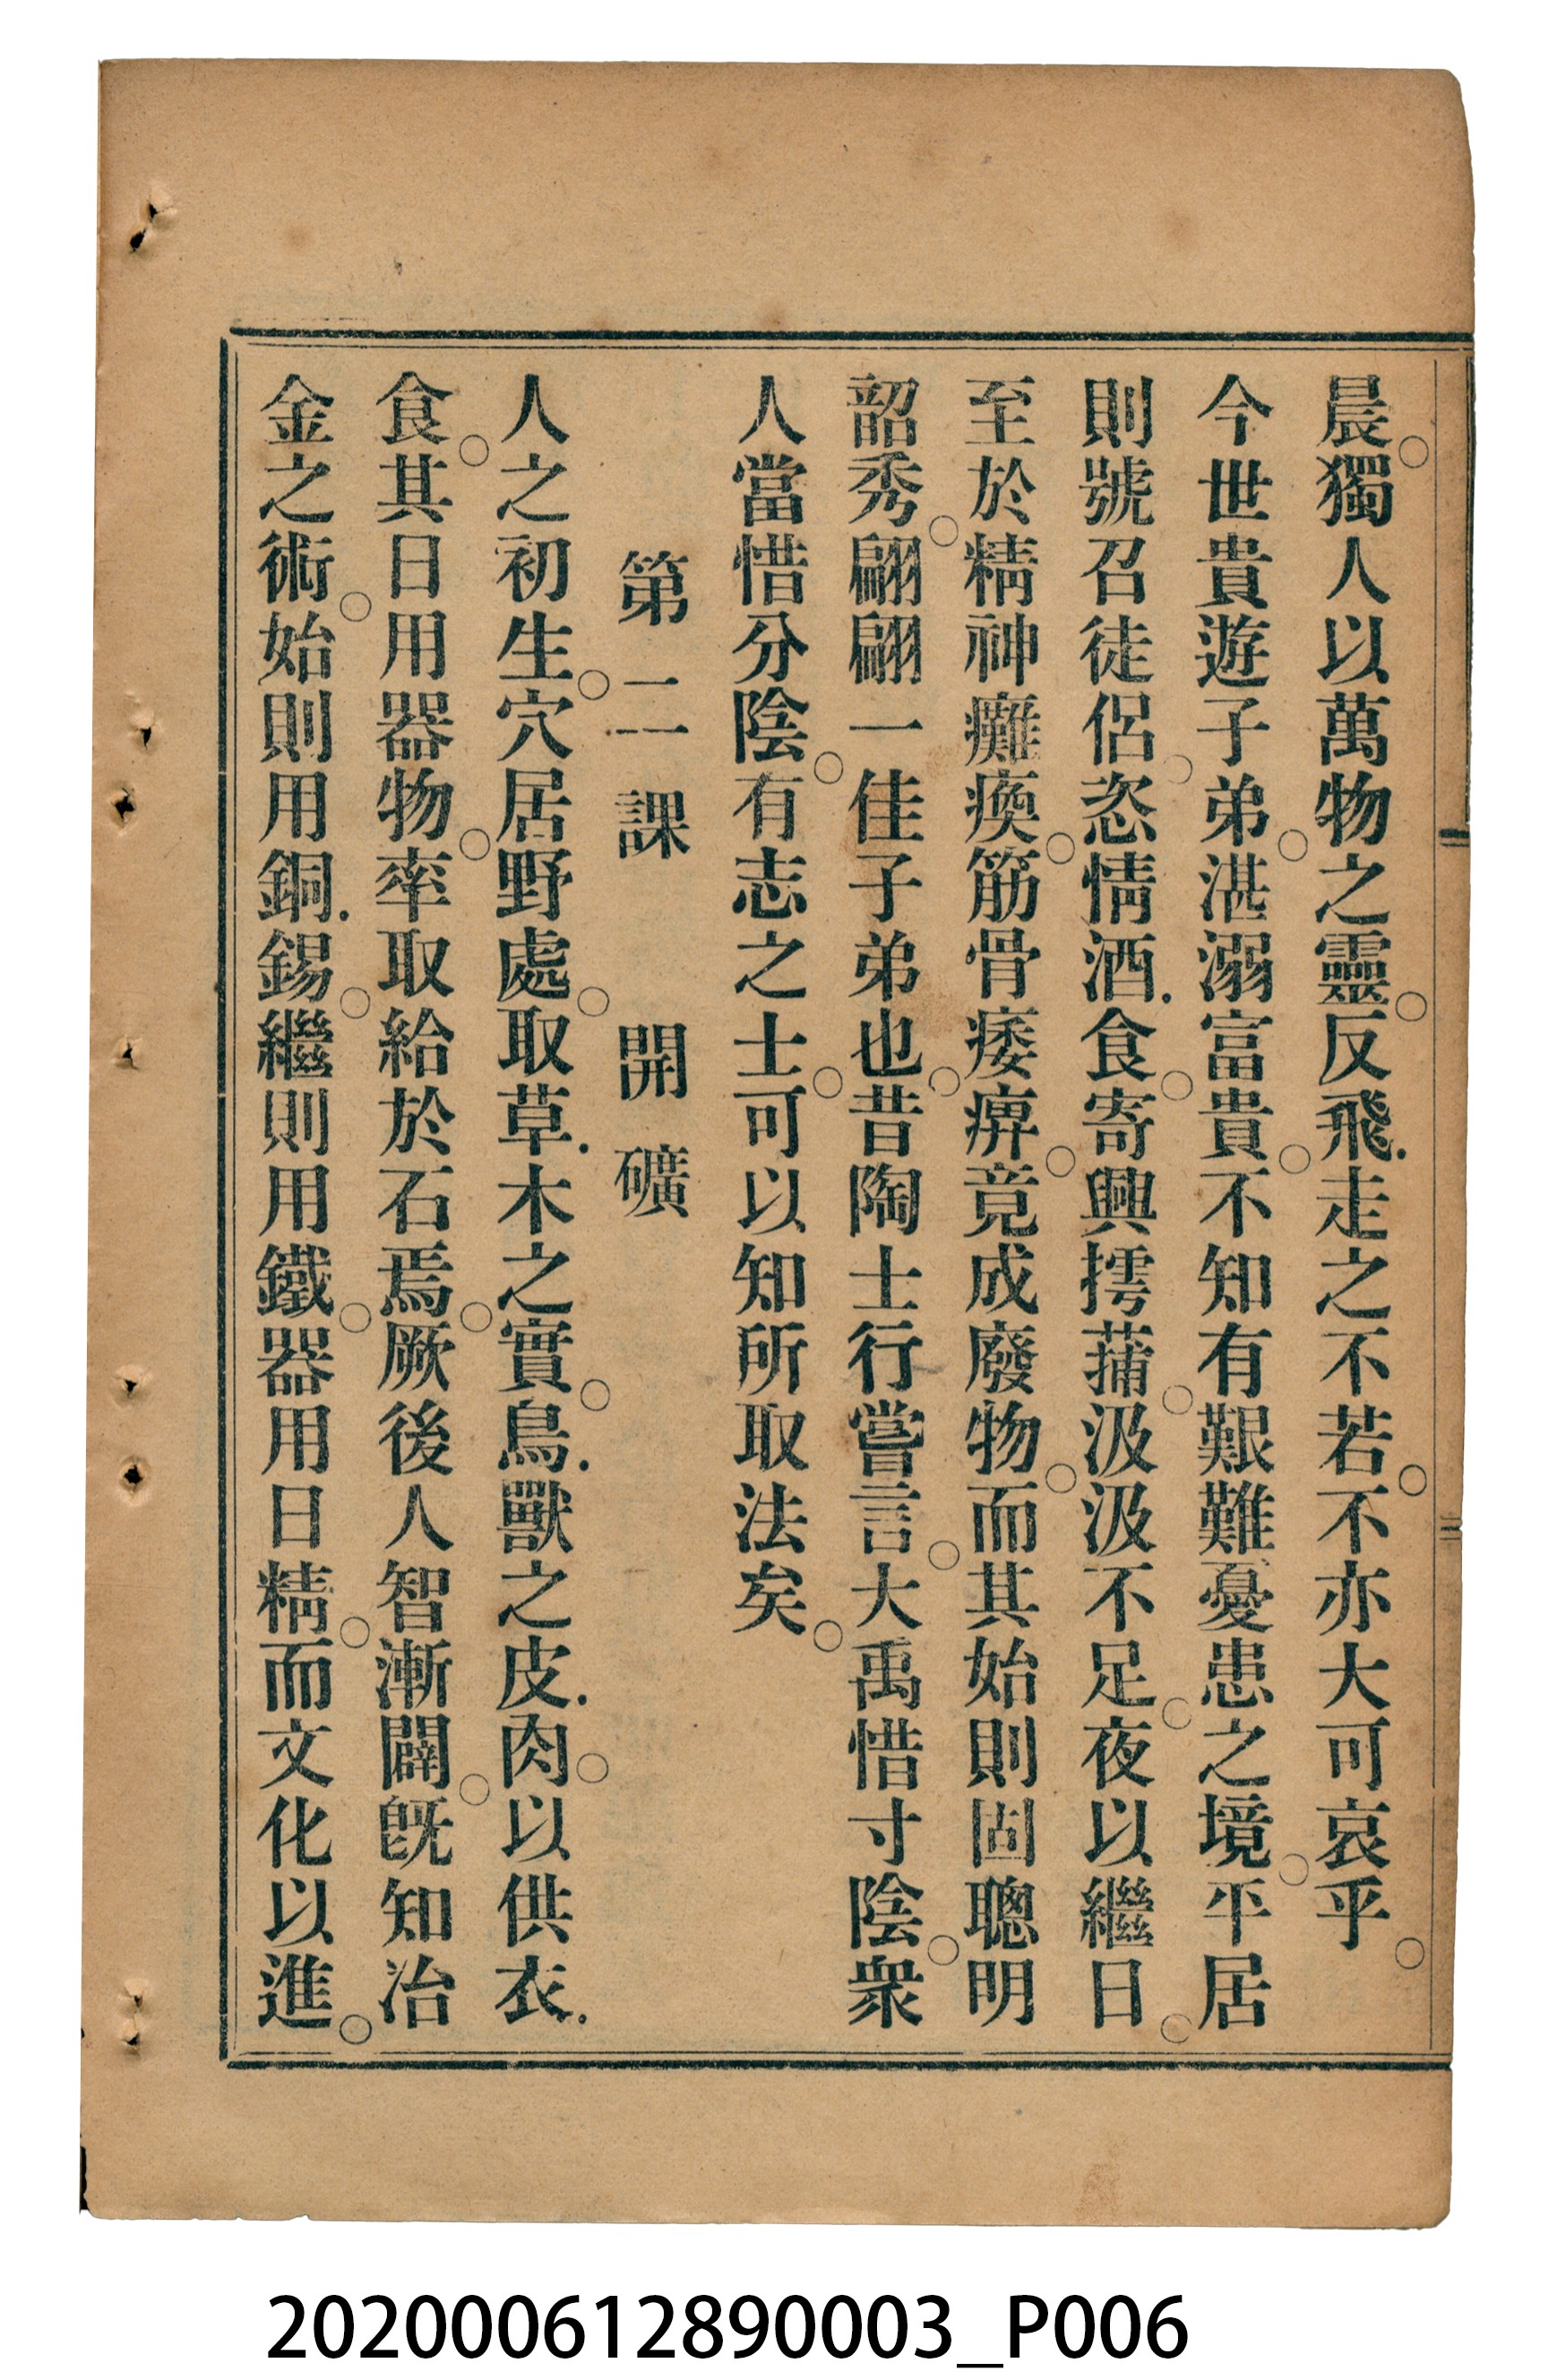 晨。獨人以萬物之靈。反飛.走之不若。不亦大可哀乎。
今世貴遊子弟。湛溺富貴。不知有艱難憂患之境。平居
則號召徒侶。恣情酒.食。寄興摴蒲。汲汲不足。夜以繼日。
至於精神癱瘓。筋骨痿痹。竟成廢物。而其始則固聰明
韶秀。翩翩一佳子弟也。昔陶士行嘗言。大禹惜寸陰。衆
人當惜分陰。有志之士。可以知所取法矣。
第二課 開礦
人之初生。穴居野處。取草.木之實。鳥.獸之皮.肉。以供衣.
食。其日用器物。率取給於石焉。厥後人智漸闢。旣知冶
金之術。始則用銅.錫。繼則用鐵。器用日精。而文化以進。
三
202000612890003_P006